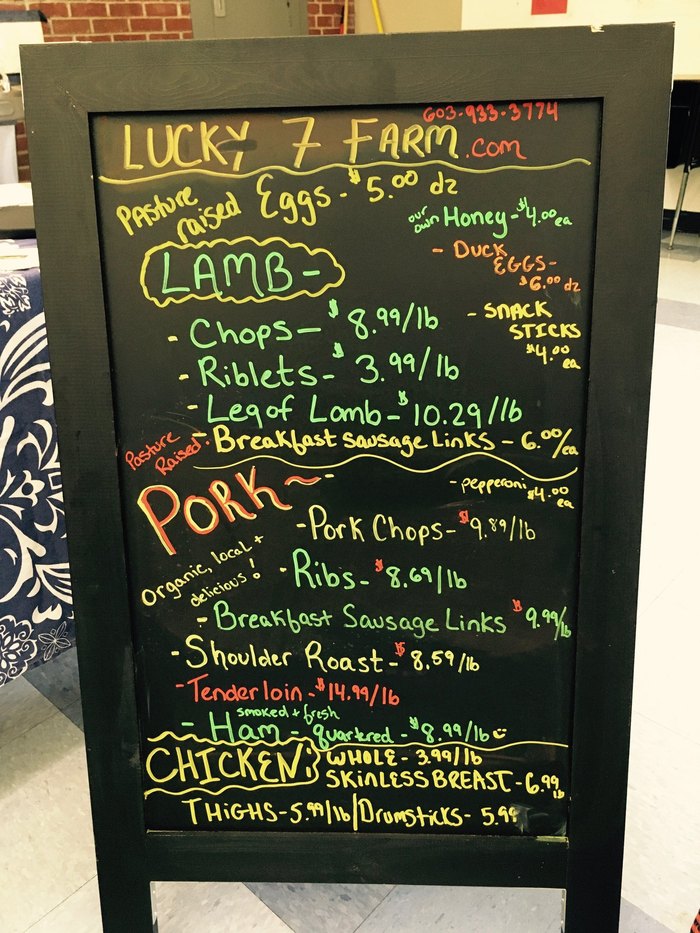 603-933-3774
LUCKY 7 FARM.com
Pasture raised Eggs - $5.00 dz
our own Honey - $4.00 ea
- DUCK EGGS -
$6.00 dz
LAMB -
- SNACK STICKS
$4.00 ea
- Chops - $8.99/lb
- Riblets - $3.99/lb
- Leg of Lamb - $10.29/lb
- Breakfast Sausage Links - 6.00/ea
Pasture Raised
PORK ~
- pepperoni $4.00 ea
- Pork Chops - $9.89/lb
Organic, local + delicious!
- Ribs - $8.69/lb
- Breakfast Sausage Links $9.99/lb
- Shoulder Roast - $8.59/lb
- Tenderloin - $14.99/lb
smoked + fresh
- Ham - quartered - $8.99/lb
CHICKEN: WHOLE - 3.99/lb
SKINLESS BREAST - 6.99 lb
THIGHS - 5.99/lb/Drumsticks - 5.99